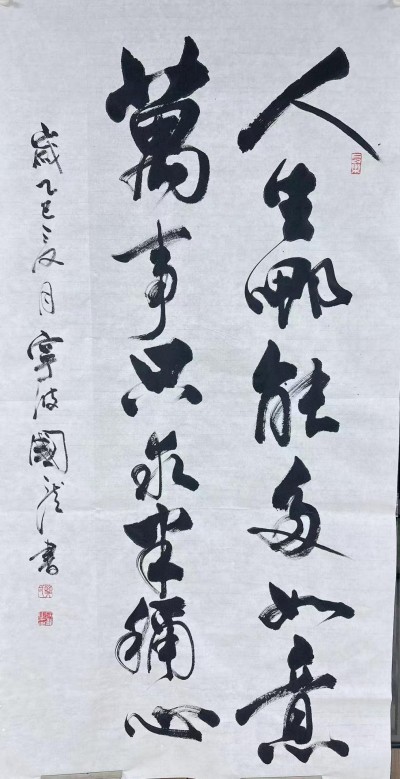 人生哪能多如意
萬事只求半稱心
歲乙巳三月寧波國龍書